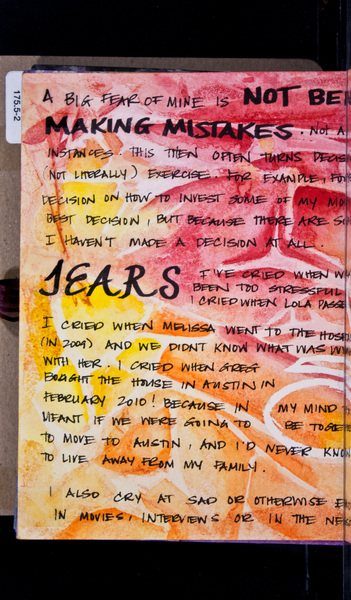 175.5-2
A BIG FEAR OF MINE IS NOT BEI
MAKING MISTAKES. NOT A
INSTANCES. THIS THEN OFTEN TURNS DECIS
(NOT LITERALLY) EXERCISE. FOR EXAMPLE, I'
DECISION ON HOW TO INVEST SOME OF MY MO
BEST DECISION, BUT BECAUSE THERE ARE SO
I HAVEN'T MADE A DECISION AT ALL.
TEARS
I'VE CRIED WHEN W
BEEN TOO STRESSFUL
I CRIED WHEN LOLA PASSE
I CRIED WHEN MELISSA WENT TO THE HOSP
(IN 2009) AND WE DIDNT KNOW WHAT WAS W
WITH HER. I CRIED WHEN GREG
BOUGHT THE HOUSE IN AUSTIN IN
FEBRUARY 2010! BECAUSE IN MY MIND
MEANT IF WE WERE GOING TO BE TOGE
TO MOVE TO AUSTIN, AND I'D NEVER KNO
TO LIVE AWAY FROM MY FAMILY.
I ALSO CRY AT SAD OR OTHERWISE E
IN MOVIES, INTERVIEWS OR IN THE NEW